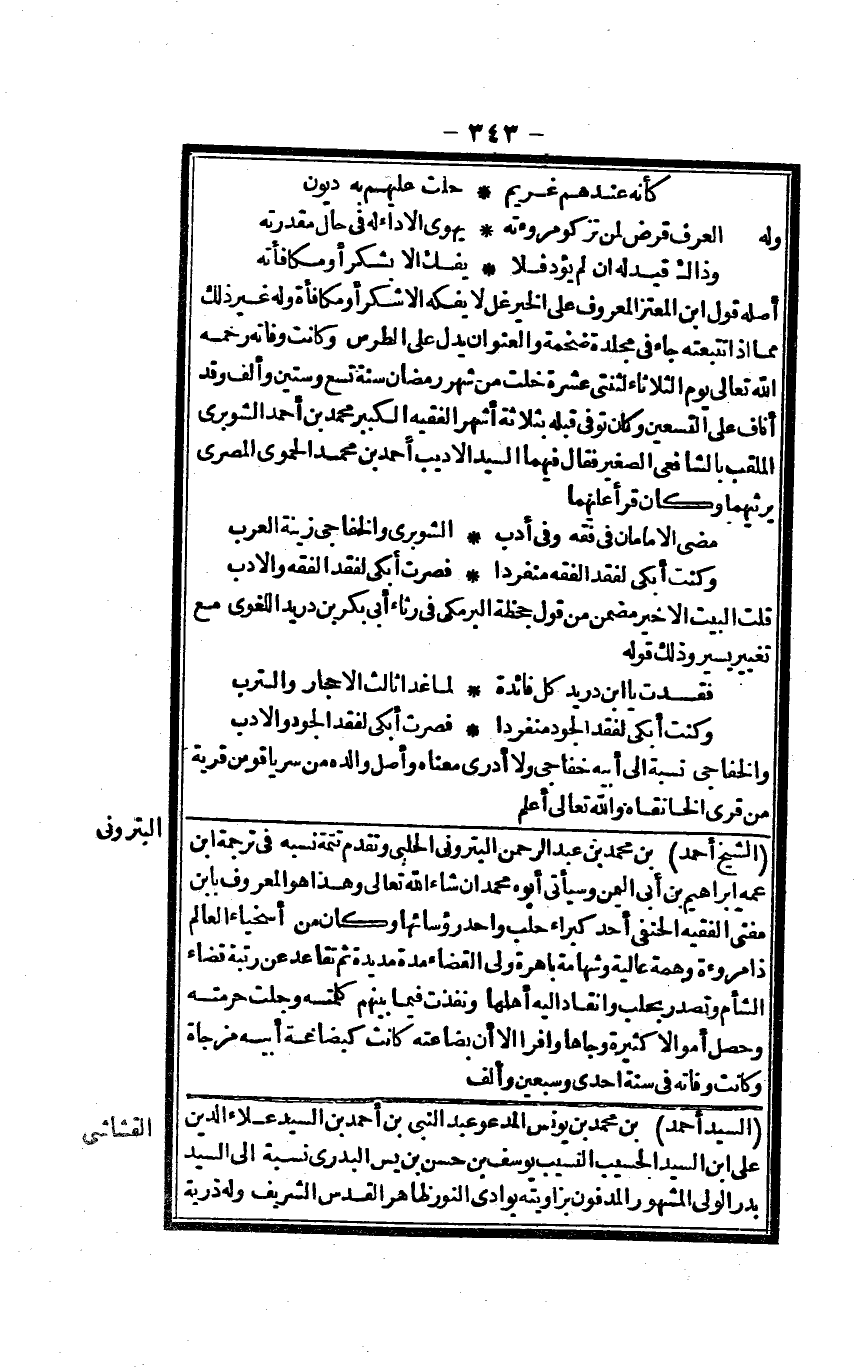 - ٣٤٣ -
كأنه عندهم غريم * حلت عليهم به ديون
وله العرف قرض لمن تزكو مروءته * يهوى الاداء له فى حال مقدرته
وذالـ قيد له ان لم يؤد فلا * يفك الا بشكر أو مكافأته
أصله قول ابن المعتز المعروف على الخير غل لا يفكه الا شكر أو مكافأة وله غير ذلك
مما اذا تتبعته جاء فى مجلدة ضخمة والعنوان يدل على الطرس وكانت وفاته رحمه
الله تعالى يوم الثلاثاء لثنتى عشرة خلت من شهر رمضان سنة تسع وستين وألف وقد
أناف على التسعين وكان توفى قبله بثلاثة أشهر الفقيه الكبير محمد بن أحمد الشوبرى
الملقب بالشافعى الصغير فقال فيهما السيد الاديب أحمد بن محمد الحموى المصرى
يرثيهما وكان قرأ عليهما
مضى الامامان فى فقه وفى أدب * الشوبرى والخفاجى زينة العرب
وكنت أبكى لفقد الفقه منفردا * فصرت أبكى لفقد الفقه والادب
قلت البيت الاخير مضمن من قول جحظة البرمكى فى رثاء أبى بكر بن دريد اللغوى مع
تغيير يسير وذلك قوله
فقدت يا ابن دريد كل فائدة * لما غدا ثالث الاحجار والترب
وكنت أبكى لفقد الجود منفردا * فصرت أبكى لفقد الجود والادب
والخفاجى نسبة الى أبيه خفاجى ولا أدرى معناه وأصل والده من سرياقو من قرية
من قرى الخانقاه والله تعالى أعلم
البترونى
(الشيخ أحمد) بن محمد بن عبد الرحمن البترونى الحلبى وتقدم تتمة نسبه فى ترجمة ابن
عمه ابراهيم بن أبى اليمن وسيأتى أبوه محمد ان شاء الله تعالى وهذا هو المعروف بابن
مفتى الفقيه الحنفى أحد كبراء حلب واحد رؤسائها وكان من أسخياء العالم
ذا مروءة وهمة عالية وشهامة باهرة ولى القضاء مدة مديدة ثم تقاعد عن رتبة قضاء
الشأم وتصدر بحلب وانقاد اليه أهلها ونفذت فيما بينهم كلمته وجلت حرمته
وحصل أموالا كثيرة وجاها وافرا الا أن بضاعته كانت كبضاعة أبيه مزجاة
وكانت وفاته فى سنة احدى وسبعين وألف
القشاشى
(السيد أحمد) بن محمد بن يونس المدعو عبد النبى بن أحمد بن السيد علاء الدين
على ابن السيد الحسيب النسيب يوسف بن حسن بن يس البدرى نسبة الى السيد
بدر الولى المشهور المدفون بزاويته بوادى النور ظاهر القدس الشريف وله ذرية